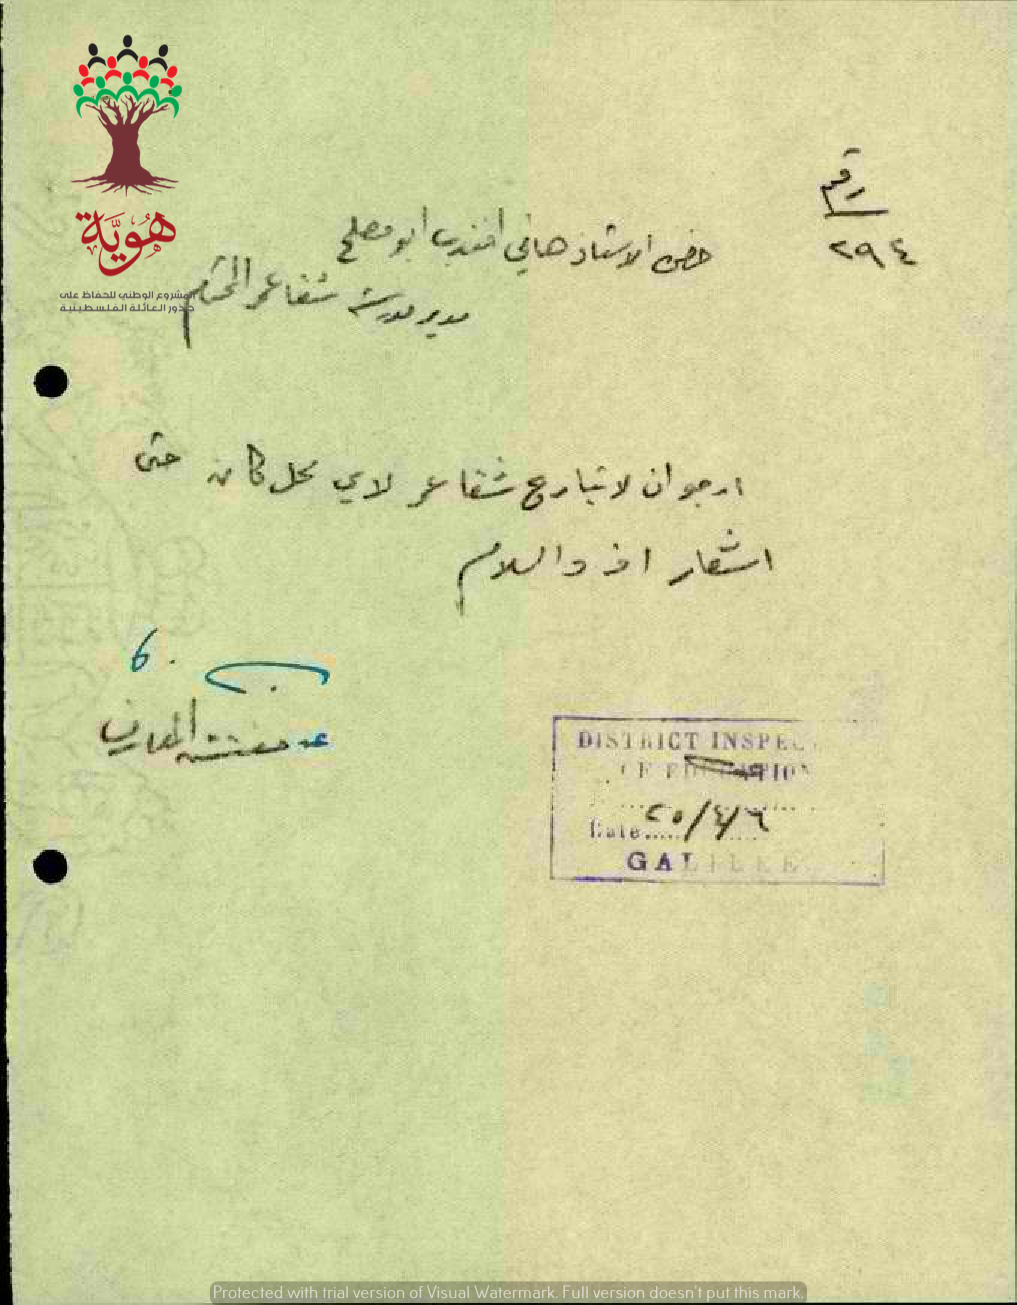 هوية
المشروع الوطني للحفاظ على
جذور العائلة الفلسطينية
رقم
٢٩٤
حضرة الاستاذ هاني افندي ابو مصلح
مدير مدرسة شفا عمر المحترم
ارجو ان لا تبارح شفا عمر لاي محل كان حتى
اشعار اخر والسلام
عن مفتش المعارف
DISTRICT INSPEC
OF EDUCATION
Date..... ٢٥/٤/٦
GALILEE
Protected with trial version of Visual Watermark. Full version doesn't put this mark.